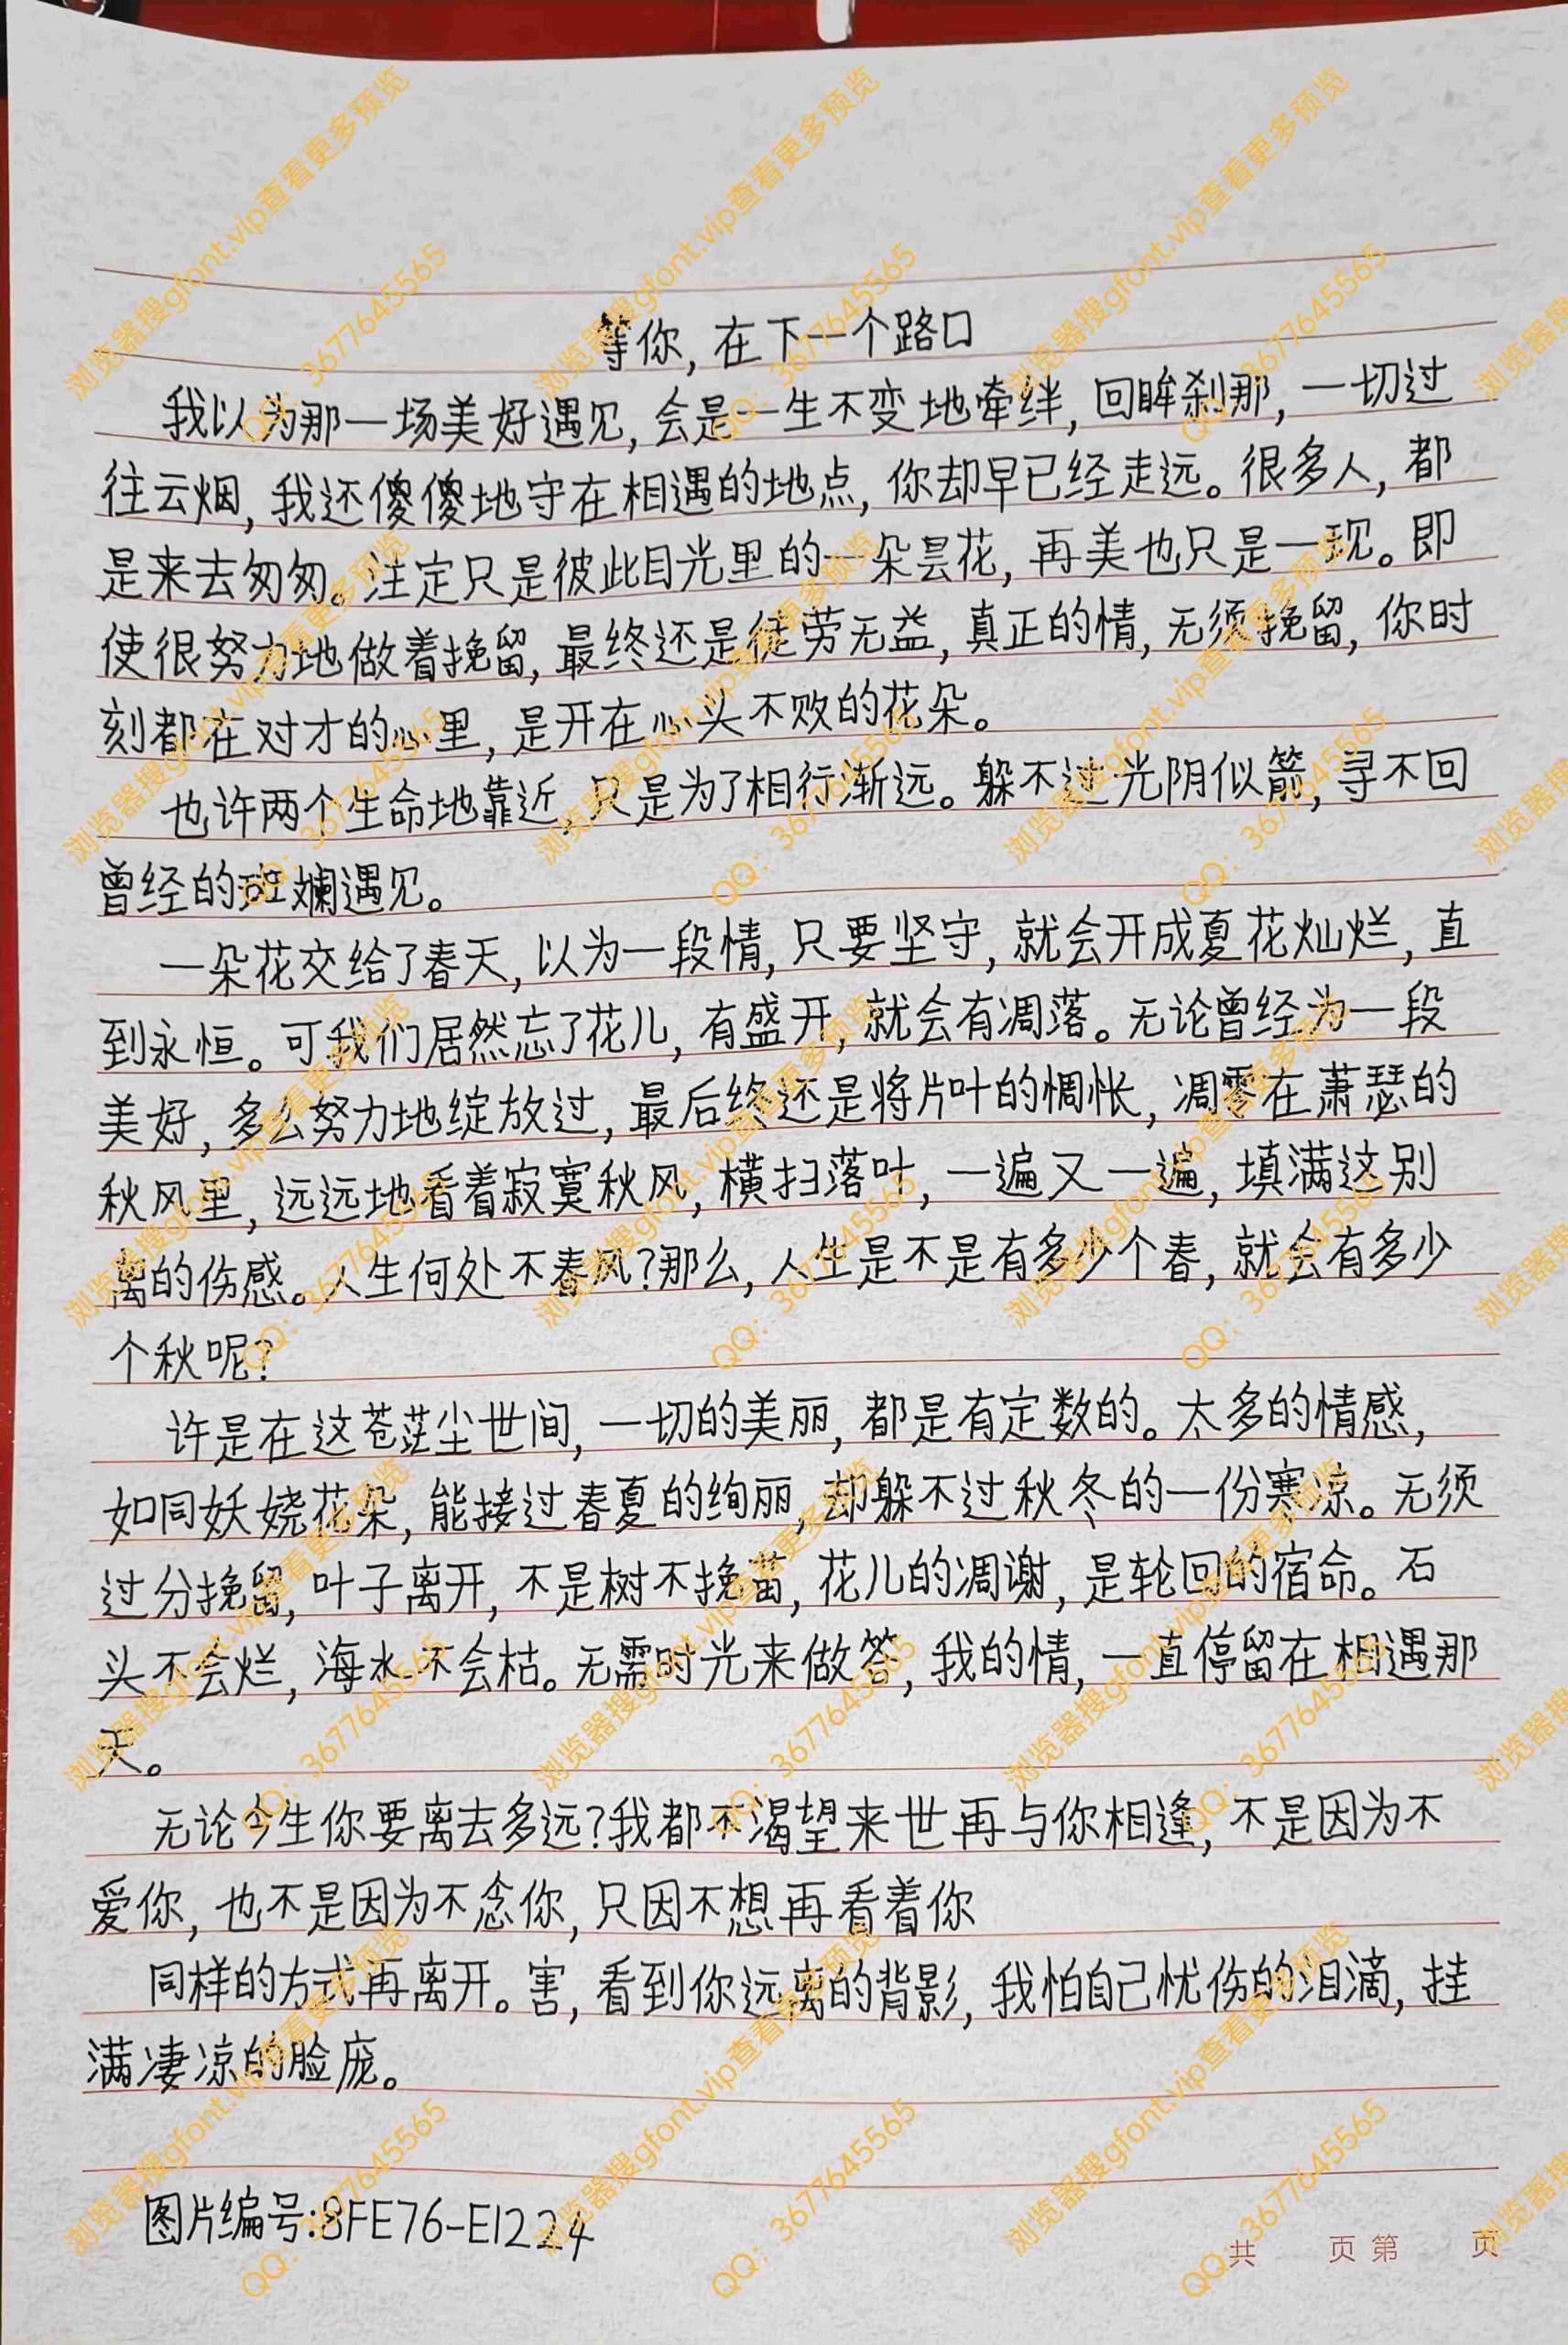 等你，在下一个路口
我以为那一场美好遇见，会是一生不变地牵绊，回眸刹那，一切过
往云烟，我还傻傻地守在相遇的地点，你却早已经走远。很多人，都
是来去匆匆。注定只是彼此目光里的一朵昙花，再美也只是一现。即
使很努力地做着挽留，最终还是徒劳无益，真正的情，无须挽留，你时
刻都在对才的心里，是开在心头不败的花朵。
也许两个生命地靠近，只是为了相行渐远。躲不过光阴似箭，寻不回
曾经的斑斓遇见。
一朵花交给了春天，以为一段情，只要坚守，就会开成夏花灿烂，直
到永恒。可我们居然忘了花儿，有盛开，就会有凋落。无论曾经为一段
美好，多么努力地绽放过，最后终还是将片叶的惆怅，凋零在萧瑟的
秋风里，远远地看着寂寞秋风，横扫落叶，一遍又一遍，填满这别
离的伤感。人生何处不春风？那么，人生是不是有多少个春，就会有多少
个秋呢？
许是在这苍茫尘世间，一切的美丽，都是有定数的。太多的情感，
如同妖娆花朵，能接过春夏的绚丽，却躲不过秋冬的一份寒凉。无须
过分挽留，叶子离开，不是树不挽留，花儿的凋谢，是轮回的宿命。石
头不会烂，海水不会枯。无需时光来做答，我的情，一直停留在相遇那
天。
无论今生你要离去多远？我都不渴望来世再与你相逢，不是因为不
爱你，也不是因为不念你，只因不想再看着你
同样的方式再离开。害，看到你远离的背影，我怕自己忧伤的泪滴，挂
满凄凉的脸庞。
图片编号：8FE76-E1224
共 页 第 页
浏览器搜gfont.vip查看更多预览
QQ：3677645565